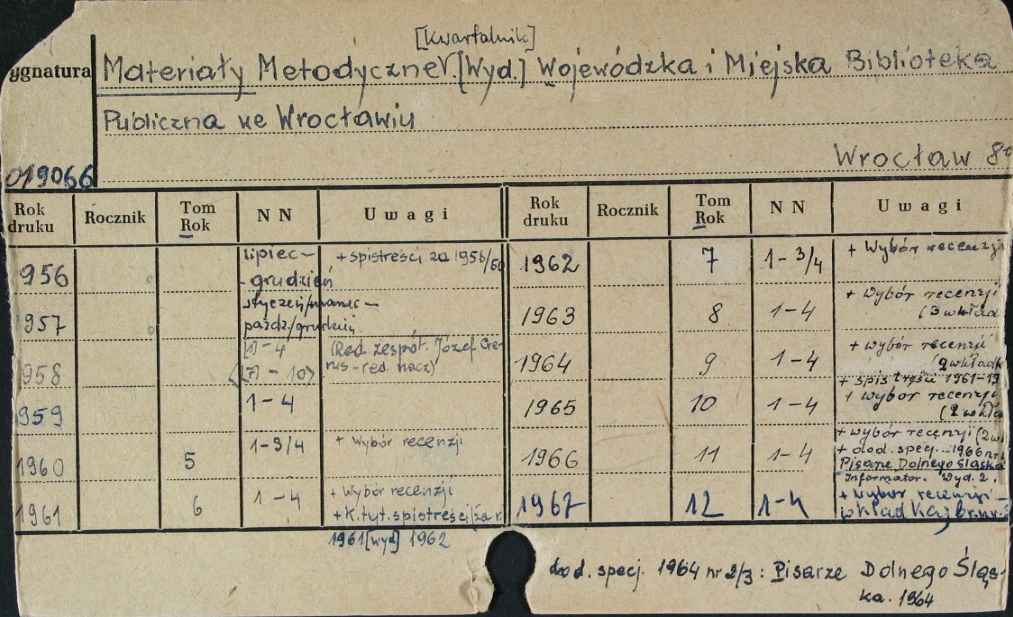 [Kwartalnik]
ygnatura
Materiały Metodyczne [Wyd.] Wojewódzka i Miejska Biblioteka
Publiczna we Wrocławiu
Wrocław 8°
019066
Rok druku Rocznik Tom Rok NN Uwagi
956 lipiec-grudzień + spis treści za 1956/60
957 styczeń/marzec - paźdz/grudzień
958 1-4 [7] - 10 (Red. zespół. Józef red. nacz)
959 1-4
1960 5 1-3/4 + Wybór recenzji
1961 6 1-4 + Wybór recenzji
+ K. tyt. spis treści za r.
1961 [wyd] 1962
Rok druku Rocznik Tom Rok NN Uwagi
1962 7 1-3/4 + Wybór recenzji
1963 8 1-4 + Wybór recenzji
(3 wkład
1964 9 1-4 + wybór recenzji
(2 wkładk
+ spis treści 1961-19
1965 10 1-4 + wybór recenzji
1966 11 1-4 + wybór recenzji (2 w
+ dod. specj. 1966 nr
Pisarze Dolnego Śląska
Informator. Wyd. 2.
1967 12 1-4 + Wybór recenzji -
dod. specj. 1964 nr 2/3: Pisarze Dolnego Śląs-
ka. 1964